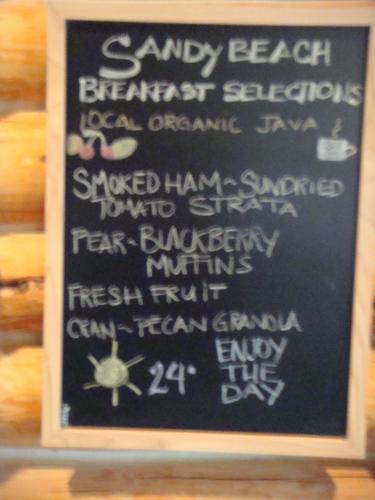 SANDY BEACH
BREAKFAST SELECTIONS
LOCAL ORGANIC JAVA &
SMOKED HAM ~ SUNDRIED
TOMATO STRATA
PEAR ~ BLACKBERRY
MUFFINS
FRESH FRUIT
CRAN ~ PECAN GRANOLA
24°
ENJOY
THE
DAY